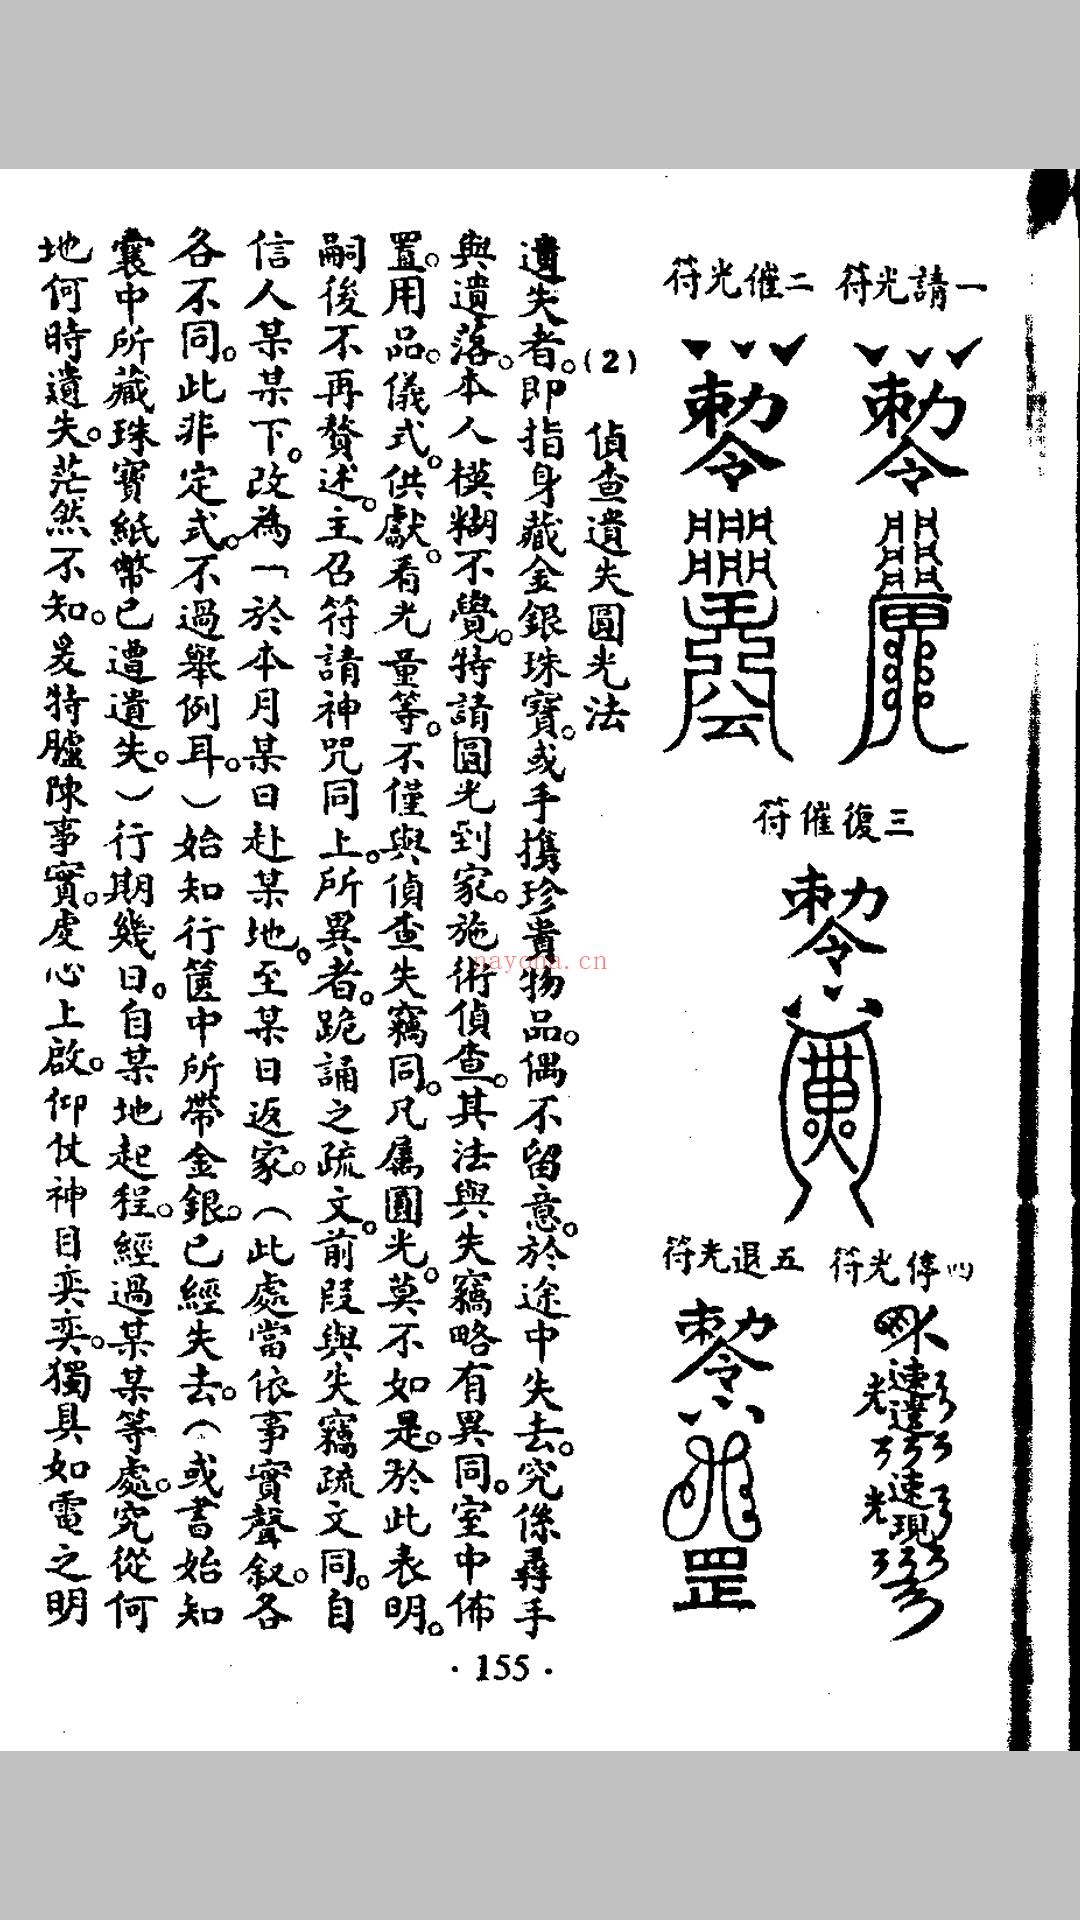 一請光符
二催光符
敕令
敕令
三復催符
敕令
四停光符
速達速現
光
光
五退光符
敕令
罡
(2) 偵查遺失圓光法
遺失者。即指身藏金銀珠寶。或手攜珍貴物品。偶不留意。於途中失去。究係尋手
與遺落。本人模糊不覺。特請圓光到家。施術偵查。其法與失竊略有異同。室中佈
置。用品。儀式。供獻。看光量等。不僅與偵查失竊同。凡屬圓光。莫不如是。於此表明。
嗣後不再贅述。主召符請神咒同上。所異者。跪誦之疏文。前段與失竊疏文同。自
信人某某下。改為「於本月某日赴某地。至某日返家。（此處當依事實聲叙。各
各不同。此非定式。不過舉例耳。）始知行篋中所帶金銀。已經失去。（或書始知
囊中所藏珠寶紙幣已遭遺失。）行期幾日。自某地起程。經過某某等處。究從何
地何時遺失。茫然不知。爰特臚陳事實。虔心上啟。仰仗神目奕奕。獨具如電之明
·155·
nayona.cn